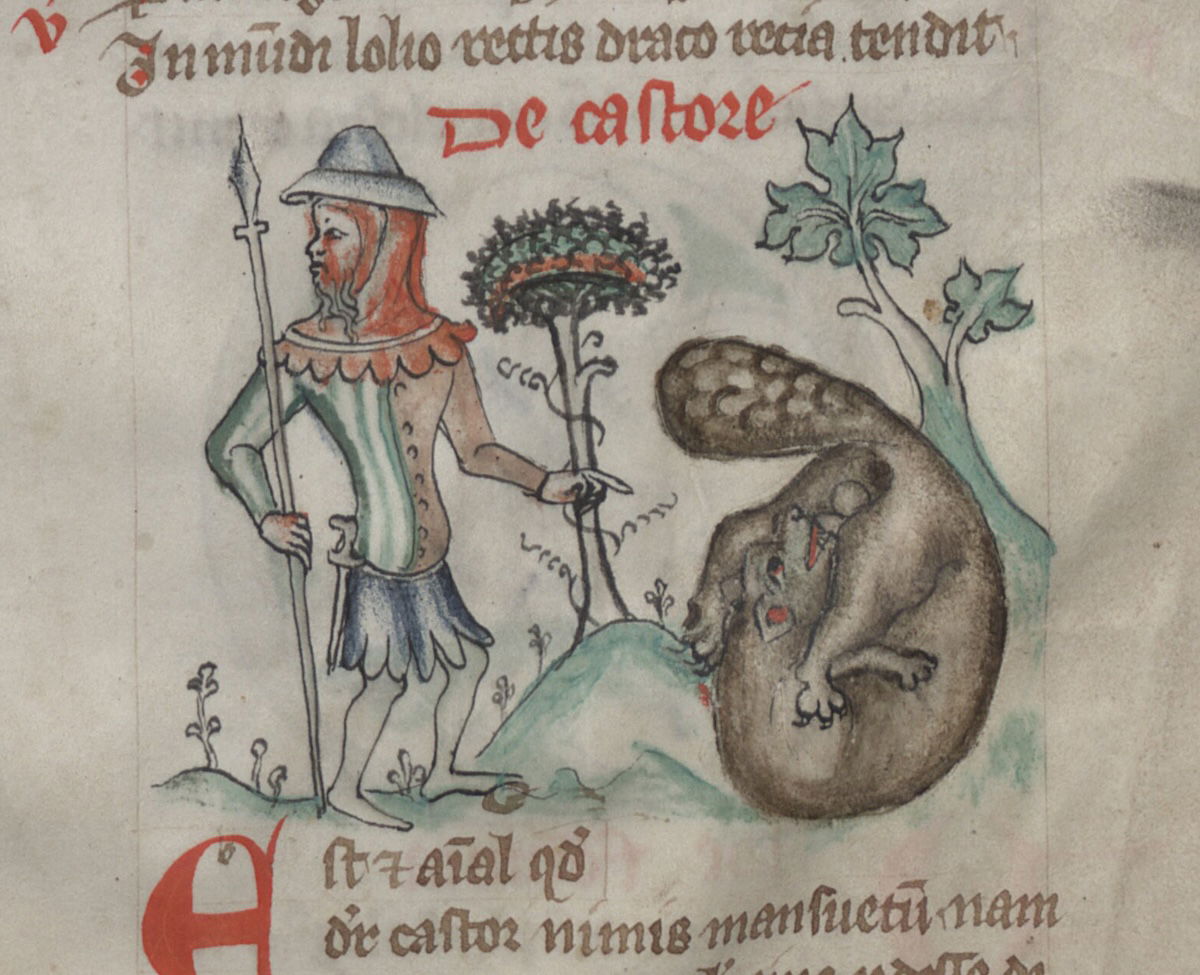 v̾
In mūdi lolio rectis draco recia tendit
De castore
Est ⁊ aīal qd̾
dr̄ castor nimis mansuetū nam